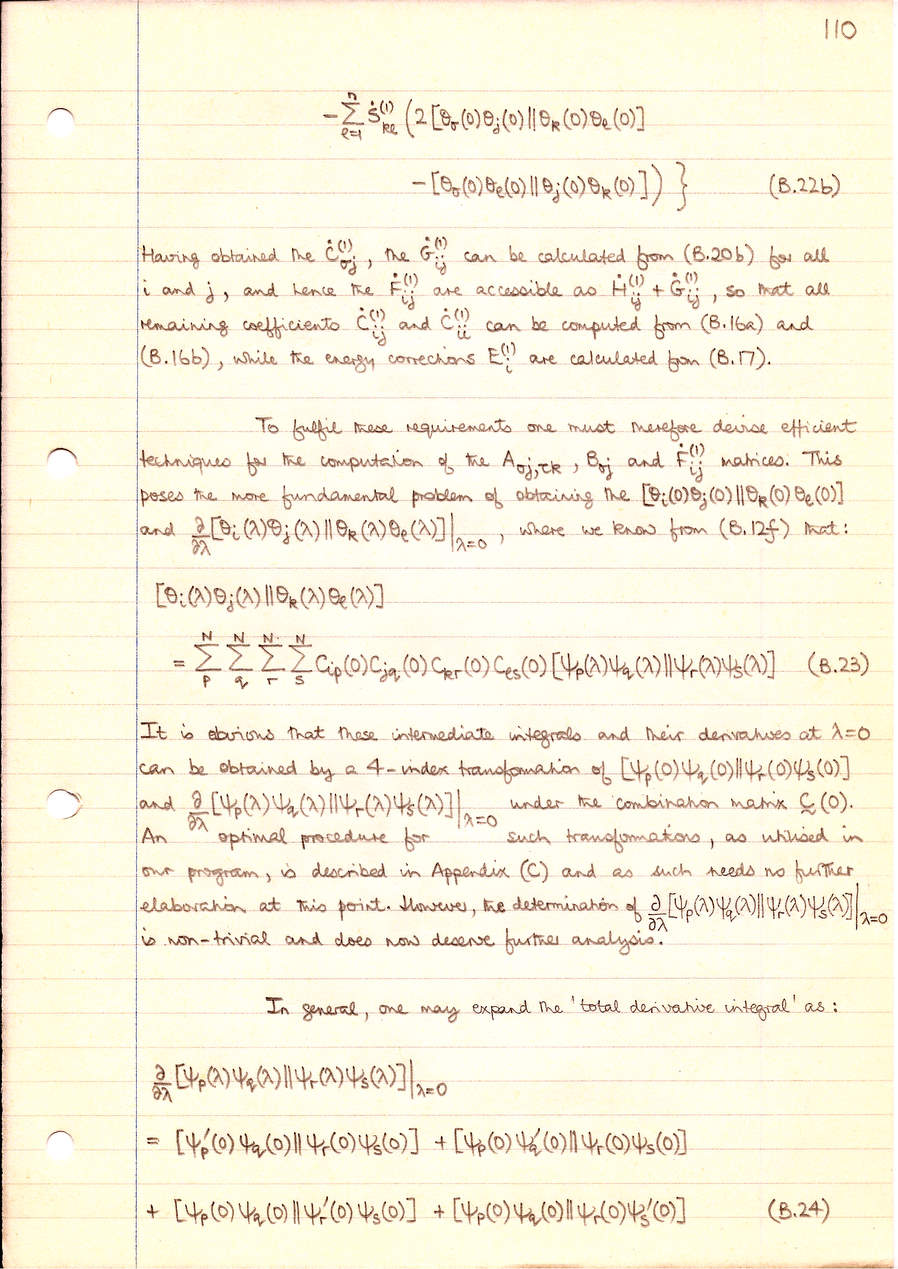 110
− Σ_{ℓ=1}^{n} Ṡ_{kℓ}^{(1)} ( 2 [θ_σ(0)θ_j(0)||θ_k(0)θ_ℓ(0)]
− [θ_σ(0)θ_ℓ(0)||θ_j(0)θ_k(0)] ) } (B.22b)
Having obtained the Ċ_{σj}^{(1)}, the Ġ_{ij}^{(1)} can be calculated from (B.20b) for all
i and j, and hence the Ḟ_{ij}^{(1)} are accessible as Ḣ_{ij}^{(1)} + Ġ_{ij}^{(1)}, so that all
remaining coefficients Ċ_{ij}^{(1)} and Ċ_{ii}^{(1)} can be computed from (B.16a) and
(B.16b), while the energy corrections E_i^{(1)} are calculated from (B.17).
To fulfil these requirements one must therefore devise efficient
techniques for the computation of the A_{σj,τk}, B_{σj} and Ḟ_{ij}^{(1)} matrices. This
poses the more fundamental problem of obtaining the [θ_i(0)θ_j(0)||θ_k(0)θ_ℓ(0)]
and ∂/∂λ [θ_i(λ)θ_j(λ)||θ_k(λ)θ_ℓ(λ)]|_{λ=0}, where we know from (B.12f) that:
[θ_i(λ)θ_j(λ)||θ_k(λ)θ_ℓ(λ)]
= Σ_p^N Σ_q^N Σ_r^N Σ_s^N C_{ip}(0) C_{jq}(0) C_{kr}(0) C_{ℓs}(0) [ψ_p(λ)ψ_q(λ)||ψ_r(λ)ψ_s(λ)] (B.23)
It is obvious that these intermediate integrals and their derivatives at λ=0
can be obtained by a 4-index transformation of [ψ_p(0)ψ_q(0)||ψ_r(0)ψ_s(0)]
and ∂/∂λ [ψ_p(λ)ψ_q(λ)||ψ_r(λ)ψ_s(λ)]|_{λ=0} under the combination matrix C̰(0).
An optimal procedure for such transformations, as utilised in
our program, is described in Appendix (C) and as such needs no further
elaboration at this point. However, the determination of ∂/∂λ [ψ_p(λ)ψ_q(λ)||ψ_r(λ)ψ_s(λ)]|_{λ=0}
is non-trivial and does now deserve further analysis.
In general, one may expand the 'total derivative integral' as:
∂/∂λ [ψ_p(λ)ψ_q(λ)||ψ_r(λ)ψ_s(λ)]|_{λ=0}
= [ψ_p'(0)ψ_q(0)||ψ_r(0)ψ_s(0)] + [ψ_p(0)ψ_q'(0)||ψ_r(0)ψ_s(0)]
+ [ψ_p(0)ψ_q(0)||ψ_r'(0)ψ_s(0)] + [ψ_p(0)ψ_q(0)||ψ_r(0)ψ_s'(0)] (B.24)